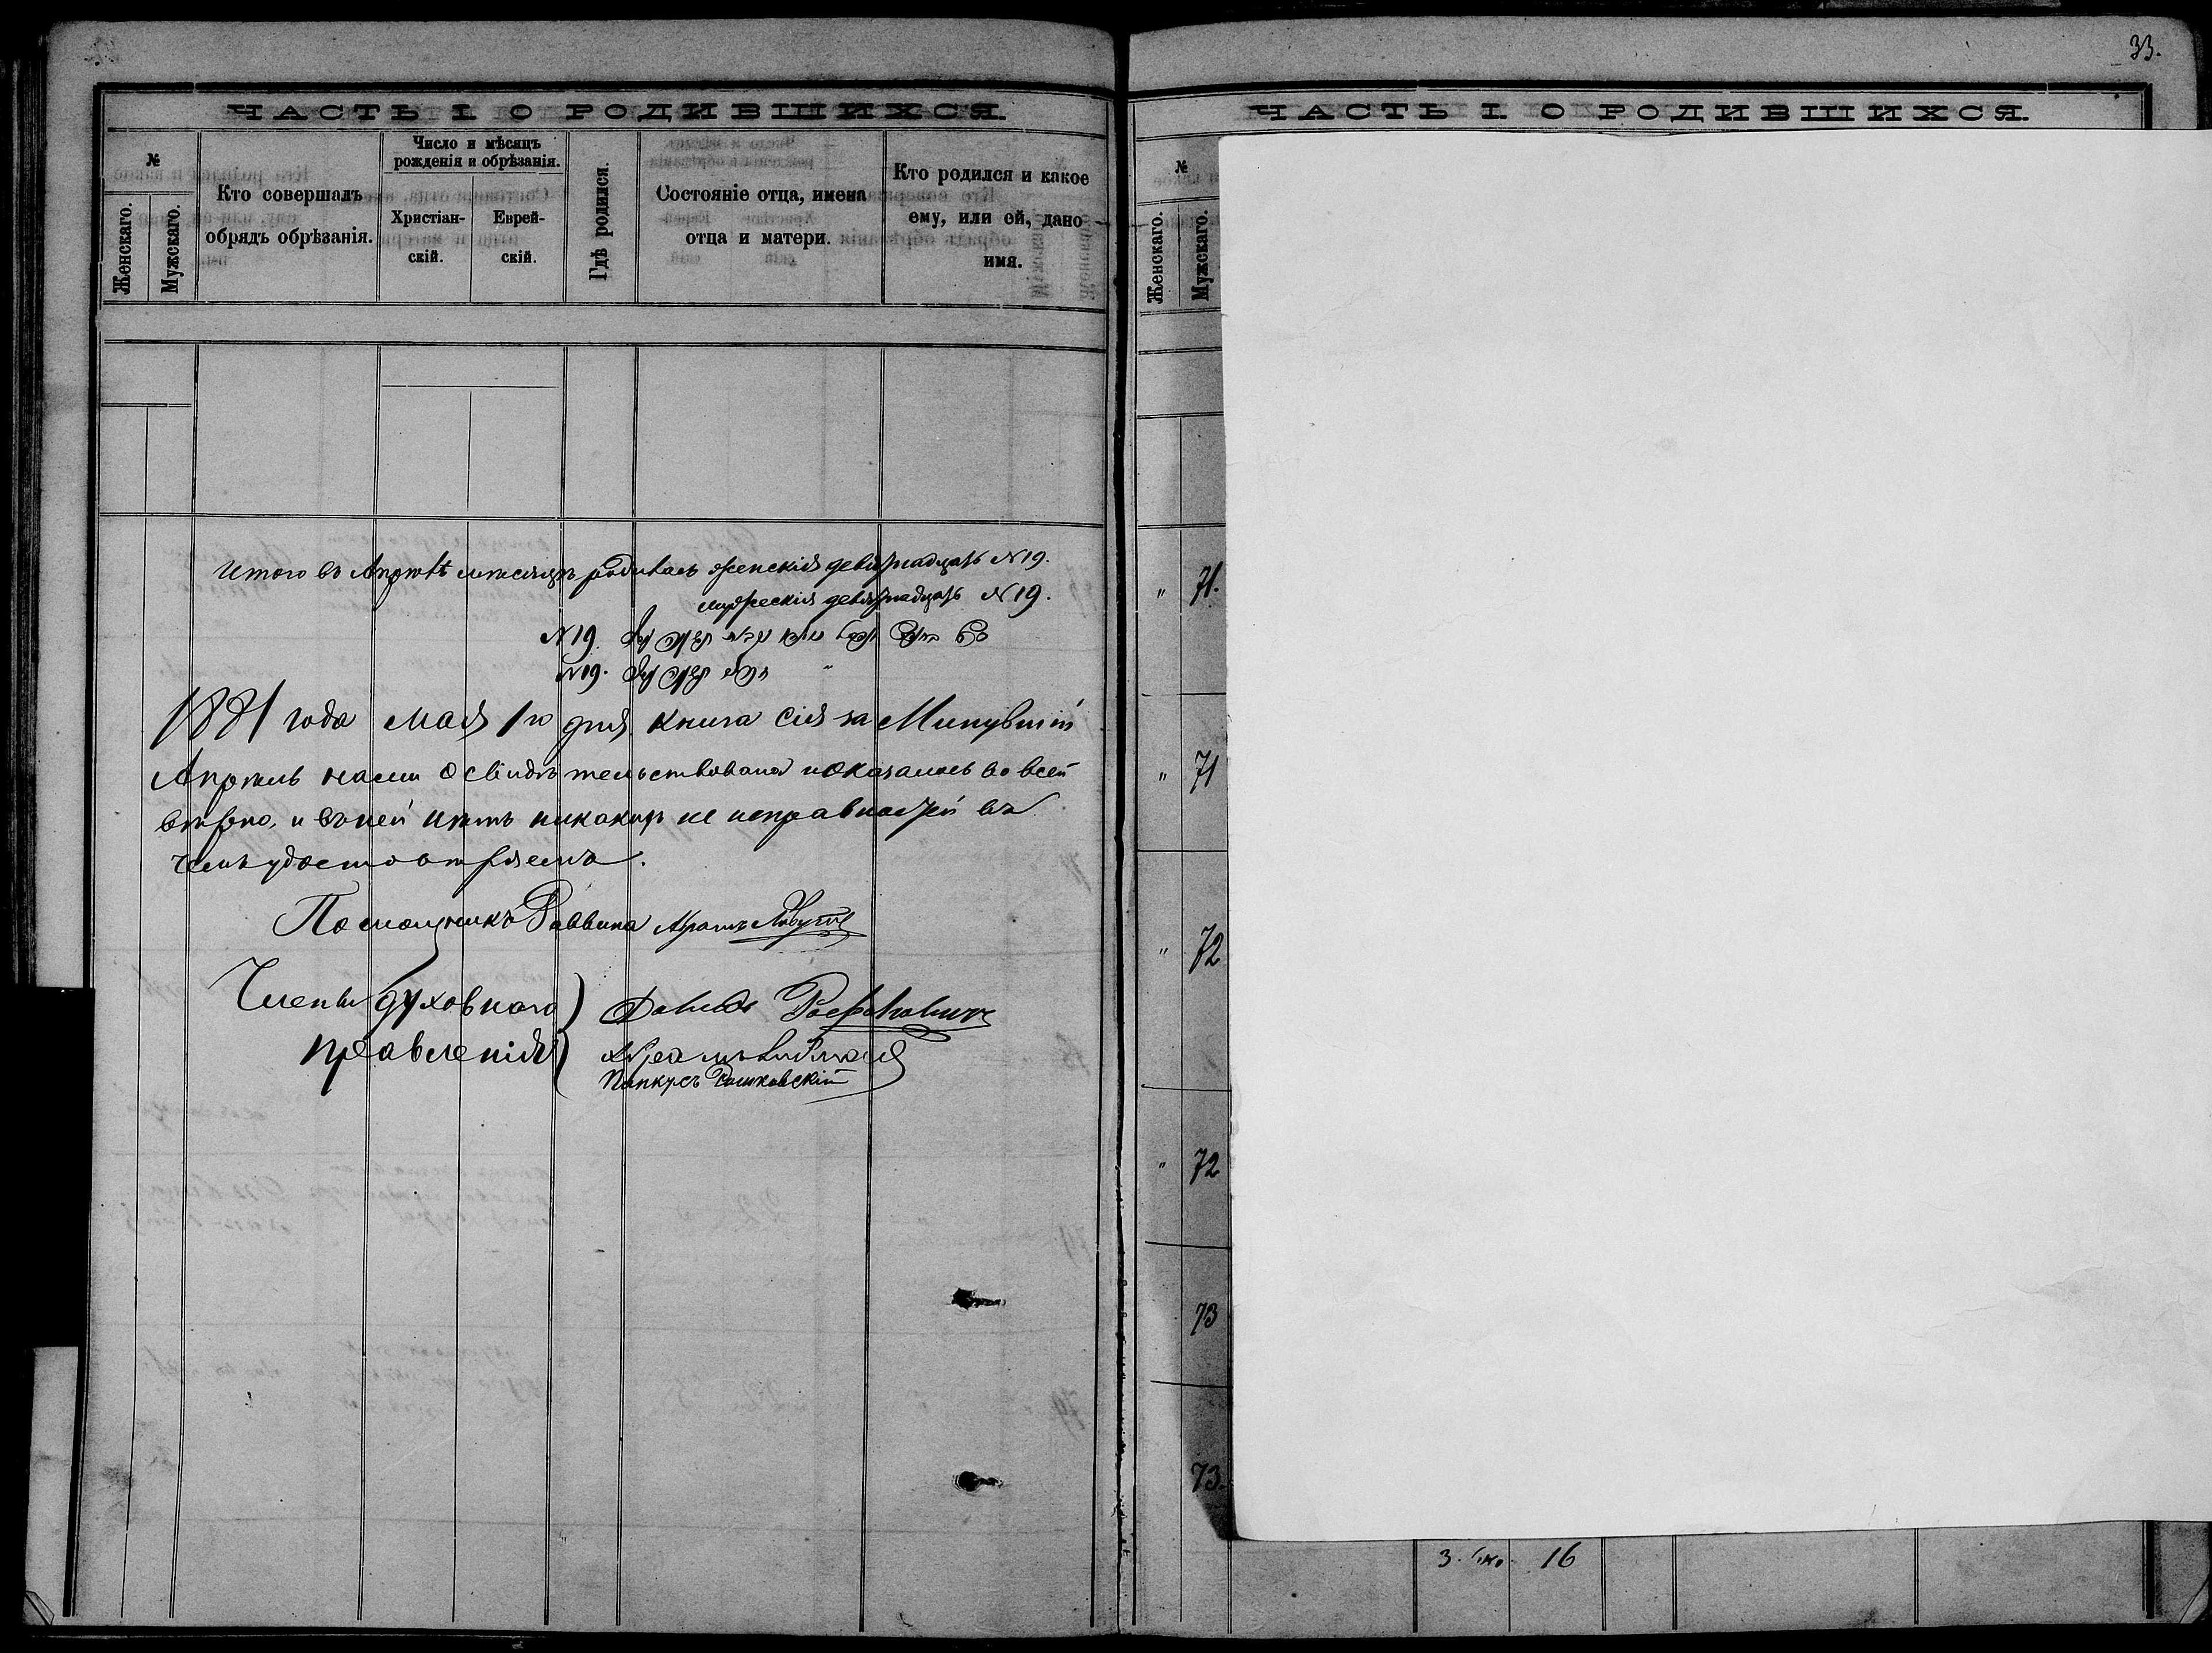 33.
ЧАСТЬ I О РОДИВШИХСЯ.
№
Женскаго.
Мужскаго.
Кто совершалъ
обрядъ обрѣзанія.
Число и мѣсяцъ
рожденія и обрѣзанія.
Христіан-
скій.
Еврей-
скій.
Гдѣ родился.
Состояніе отца, имена
отца и матери.
Кто родился и какое
ему, или ей, дано
имя.
Итого въ Апрѣлѣ мѣсяцѣ родилась женскія девятнадцать N 19.
мужескія девятнадцать N 19.
N 19.
N 19.
1881 года мая 1го дня книга сія за Минувшій
Апрѣль нами освидѣтельствована и оказалось во всей
вѣрно, и въ ней нѣтъ никакихъ не исправностей въ
чемъ удостовѣряемъ.
Помощникъ Раввина Абрамъ
Члены духовного
правленія
Давидъ
Абрамъ
Пинкусъ Рашковскій
ЧАСТЬ I О РОДИВШИХСЯ.
№
Женскаго.
Мужскаго.
" 71.
" 71
" 72
" 72
73
73.
3. 16